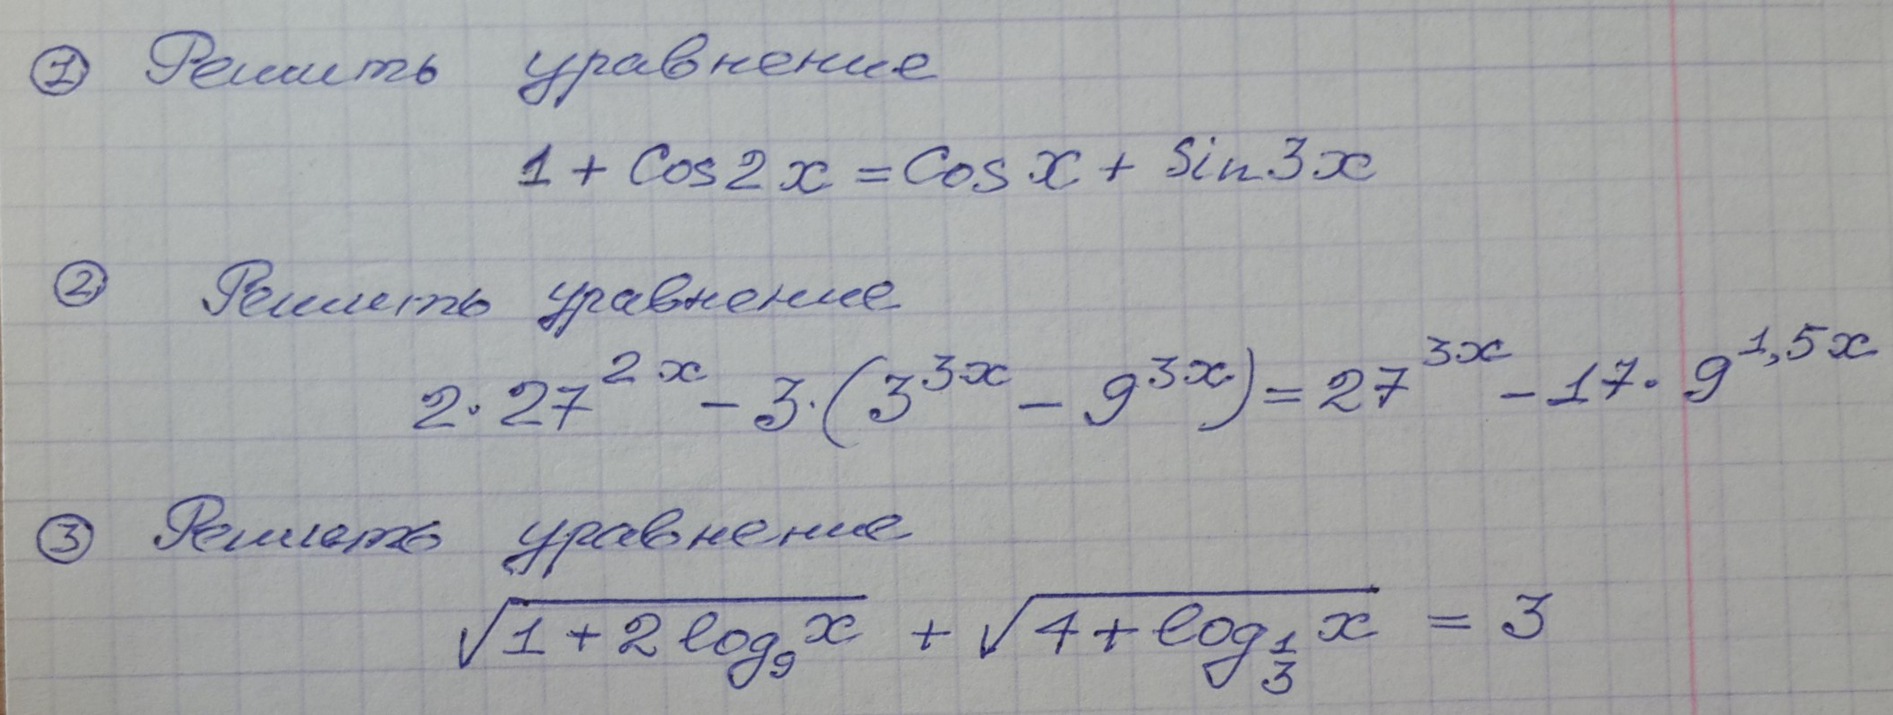 ① Решить уравнение
1 + Cos2x = Cosx + Sin3x
② Решить уравнение
2·27^{2x} – 3·(3^{3x} – 9^{3x}) = 27^{3x} – 17·9^{1,5x}
③ Решить уравнение
√(1 + 2log₉x) + √(4 + log_{1/3}x) = 3